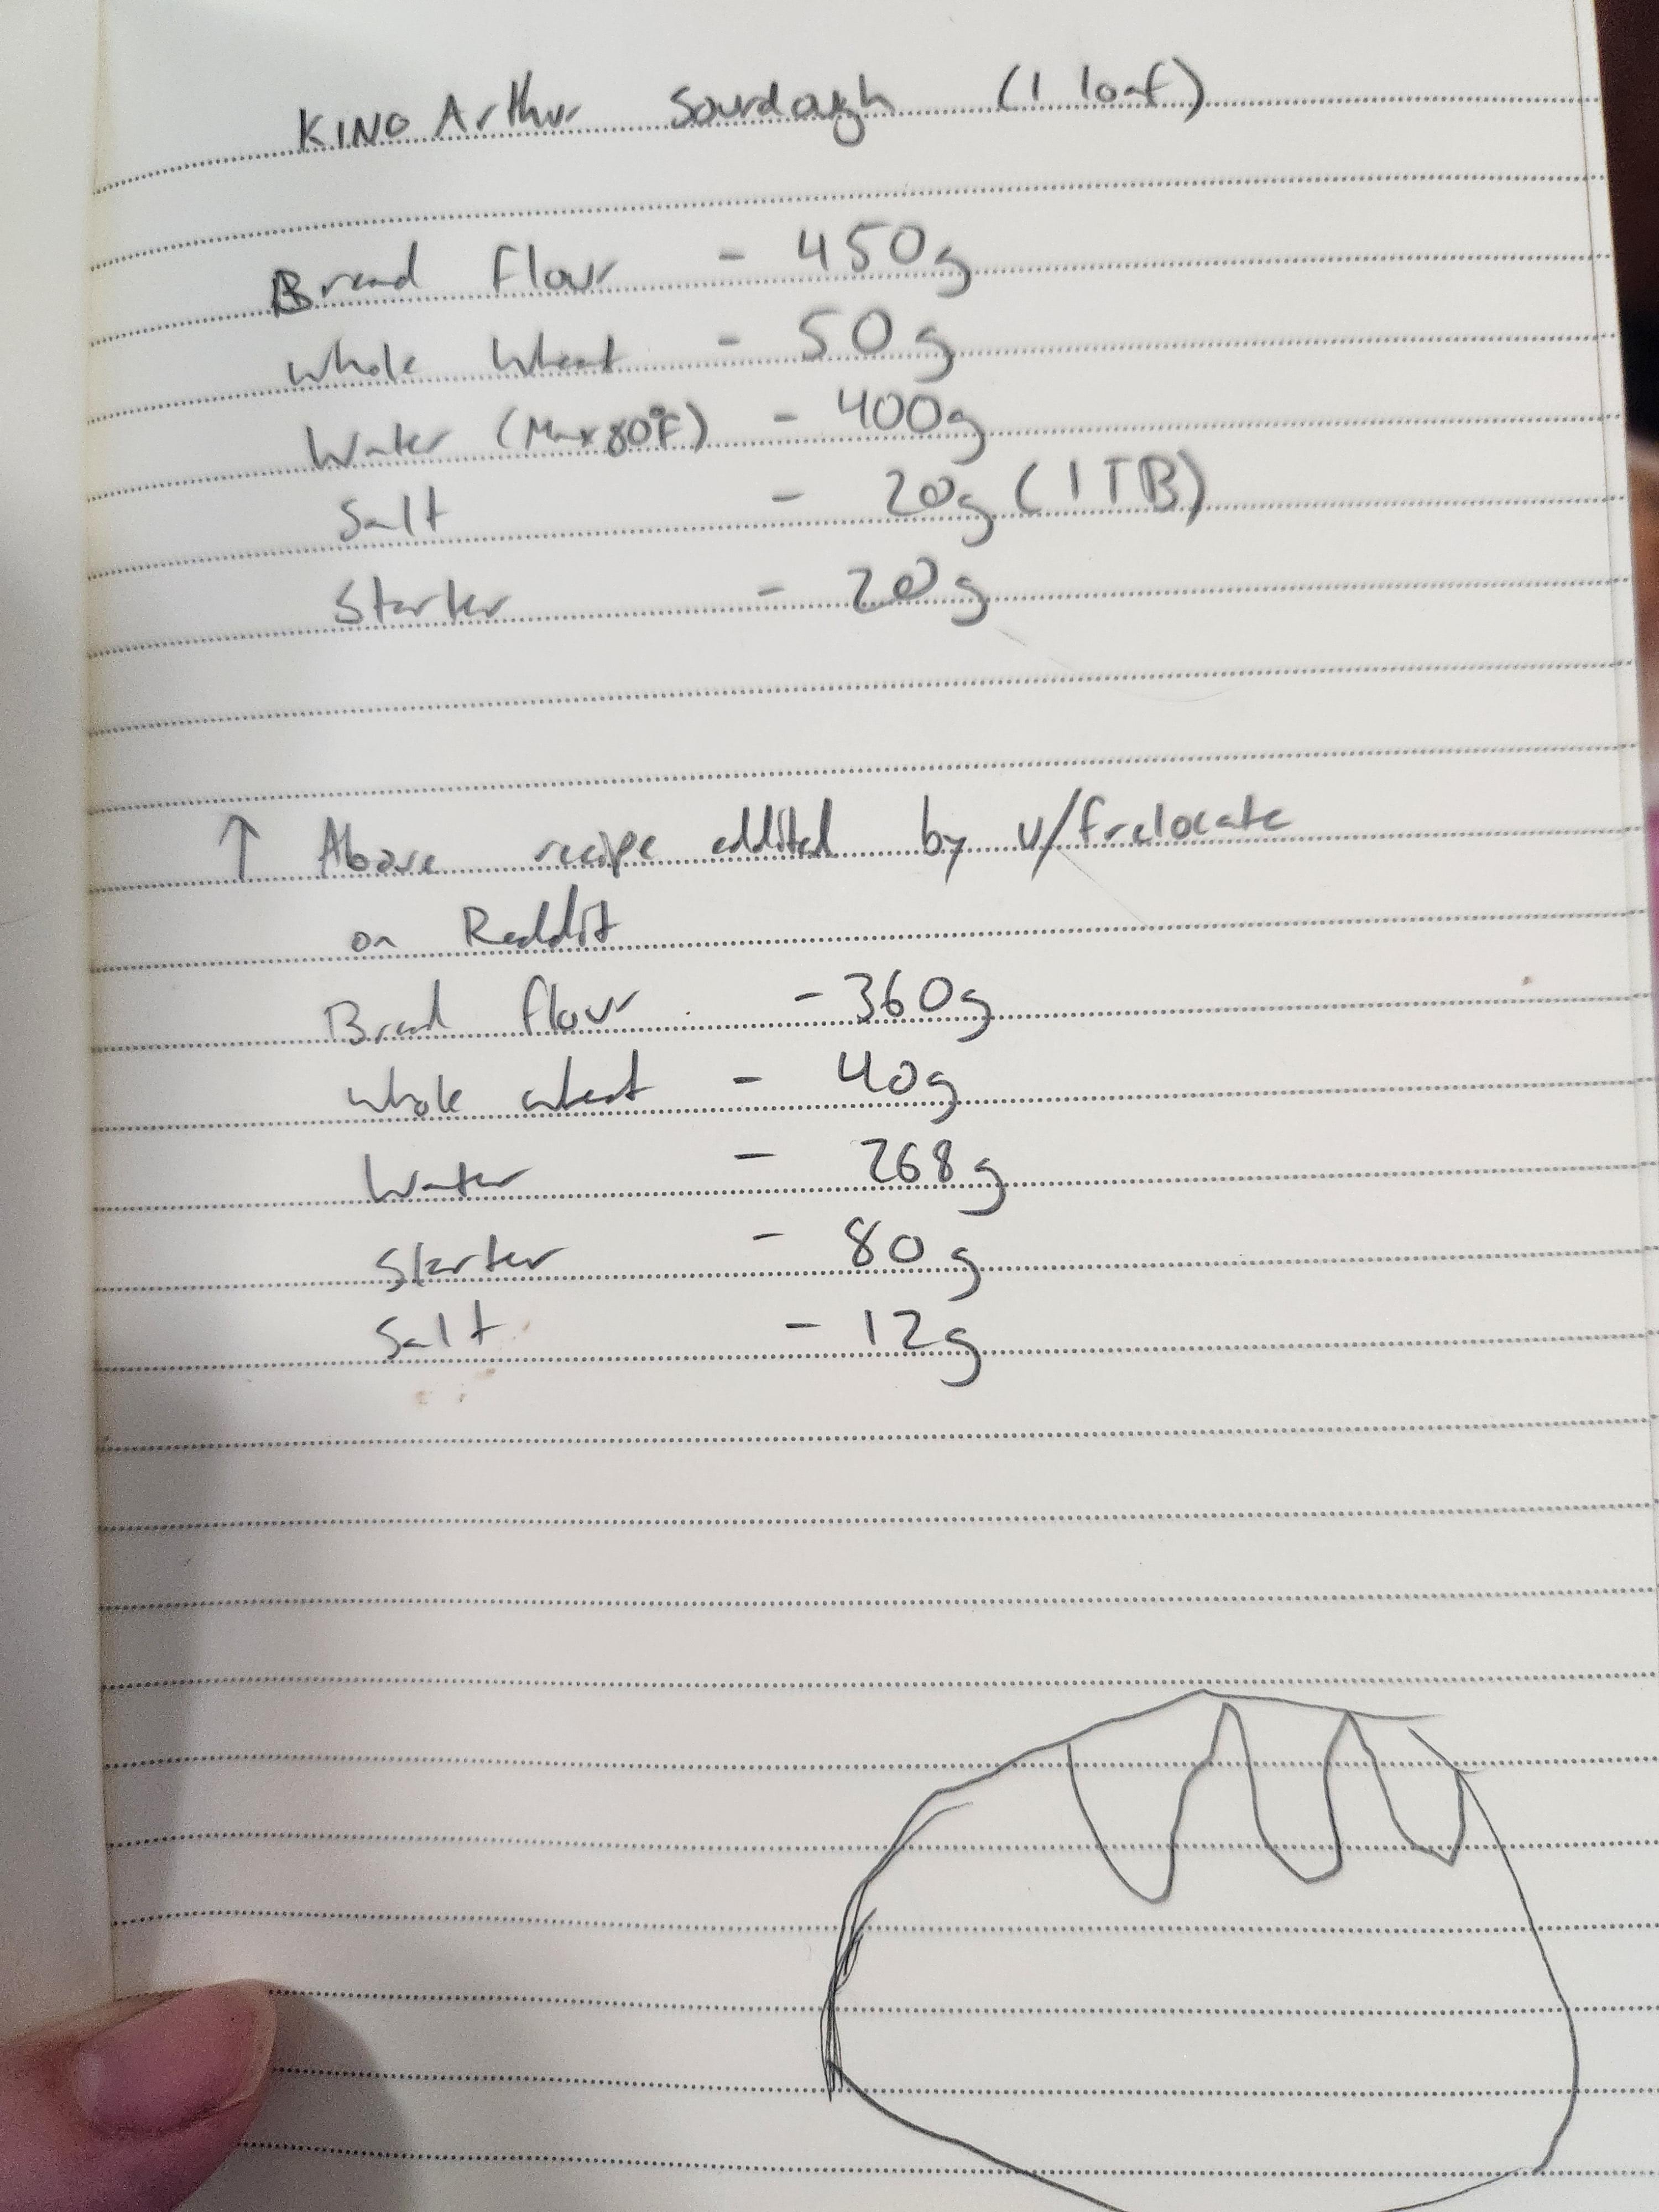 KING Arthur Sourdough (1 loaf)
Bread flour - 450g
Whole Wheat - 50g
Water (Max 80°F) - 400g
Salt - 20g (1 TB)
Starter - 20g
↑ Above recipe eddited by u/frelocate
on Reddit
Bread flour - 360g
Whole wheat - 40g
Water - 268g
Starter - 80g
Salt - 12g